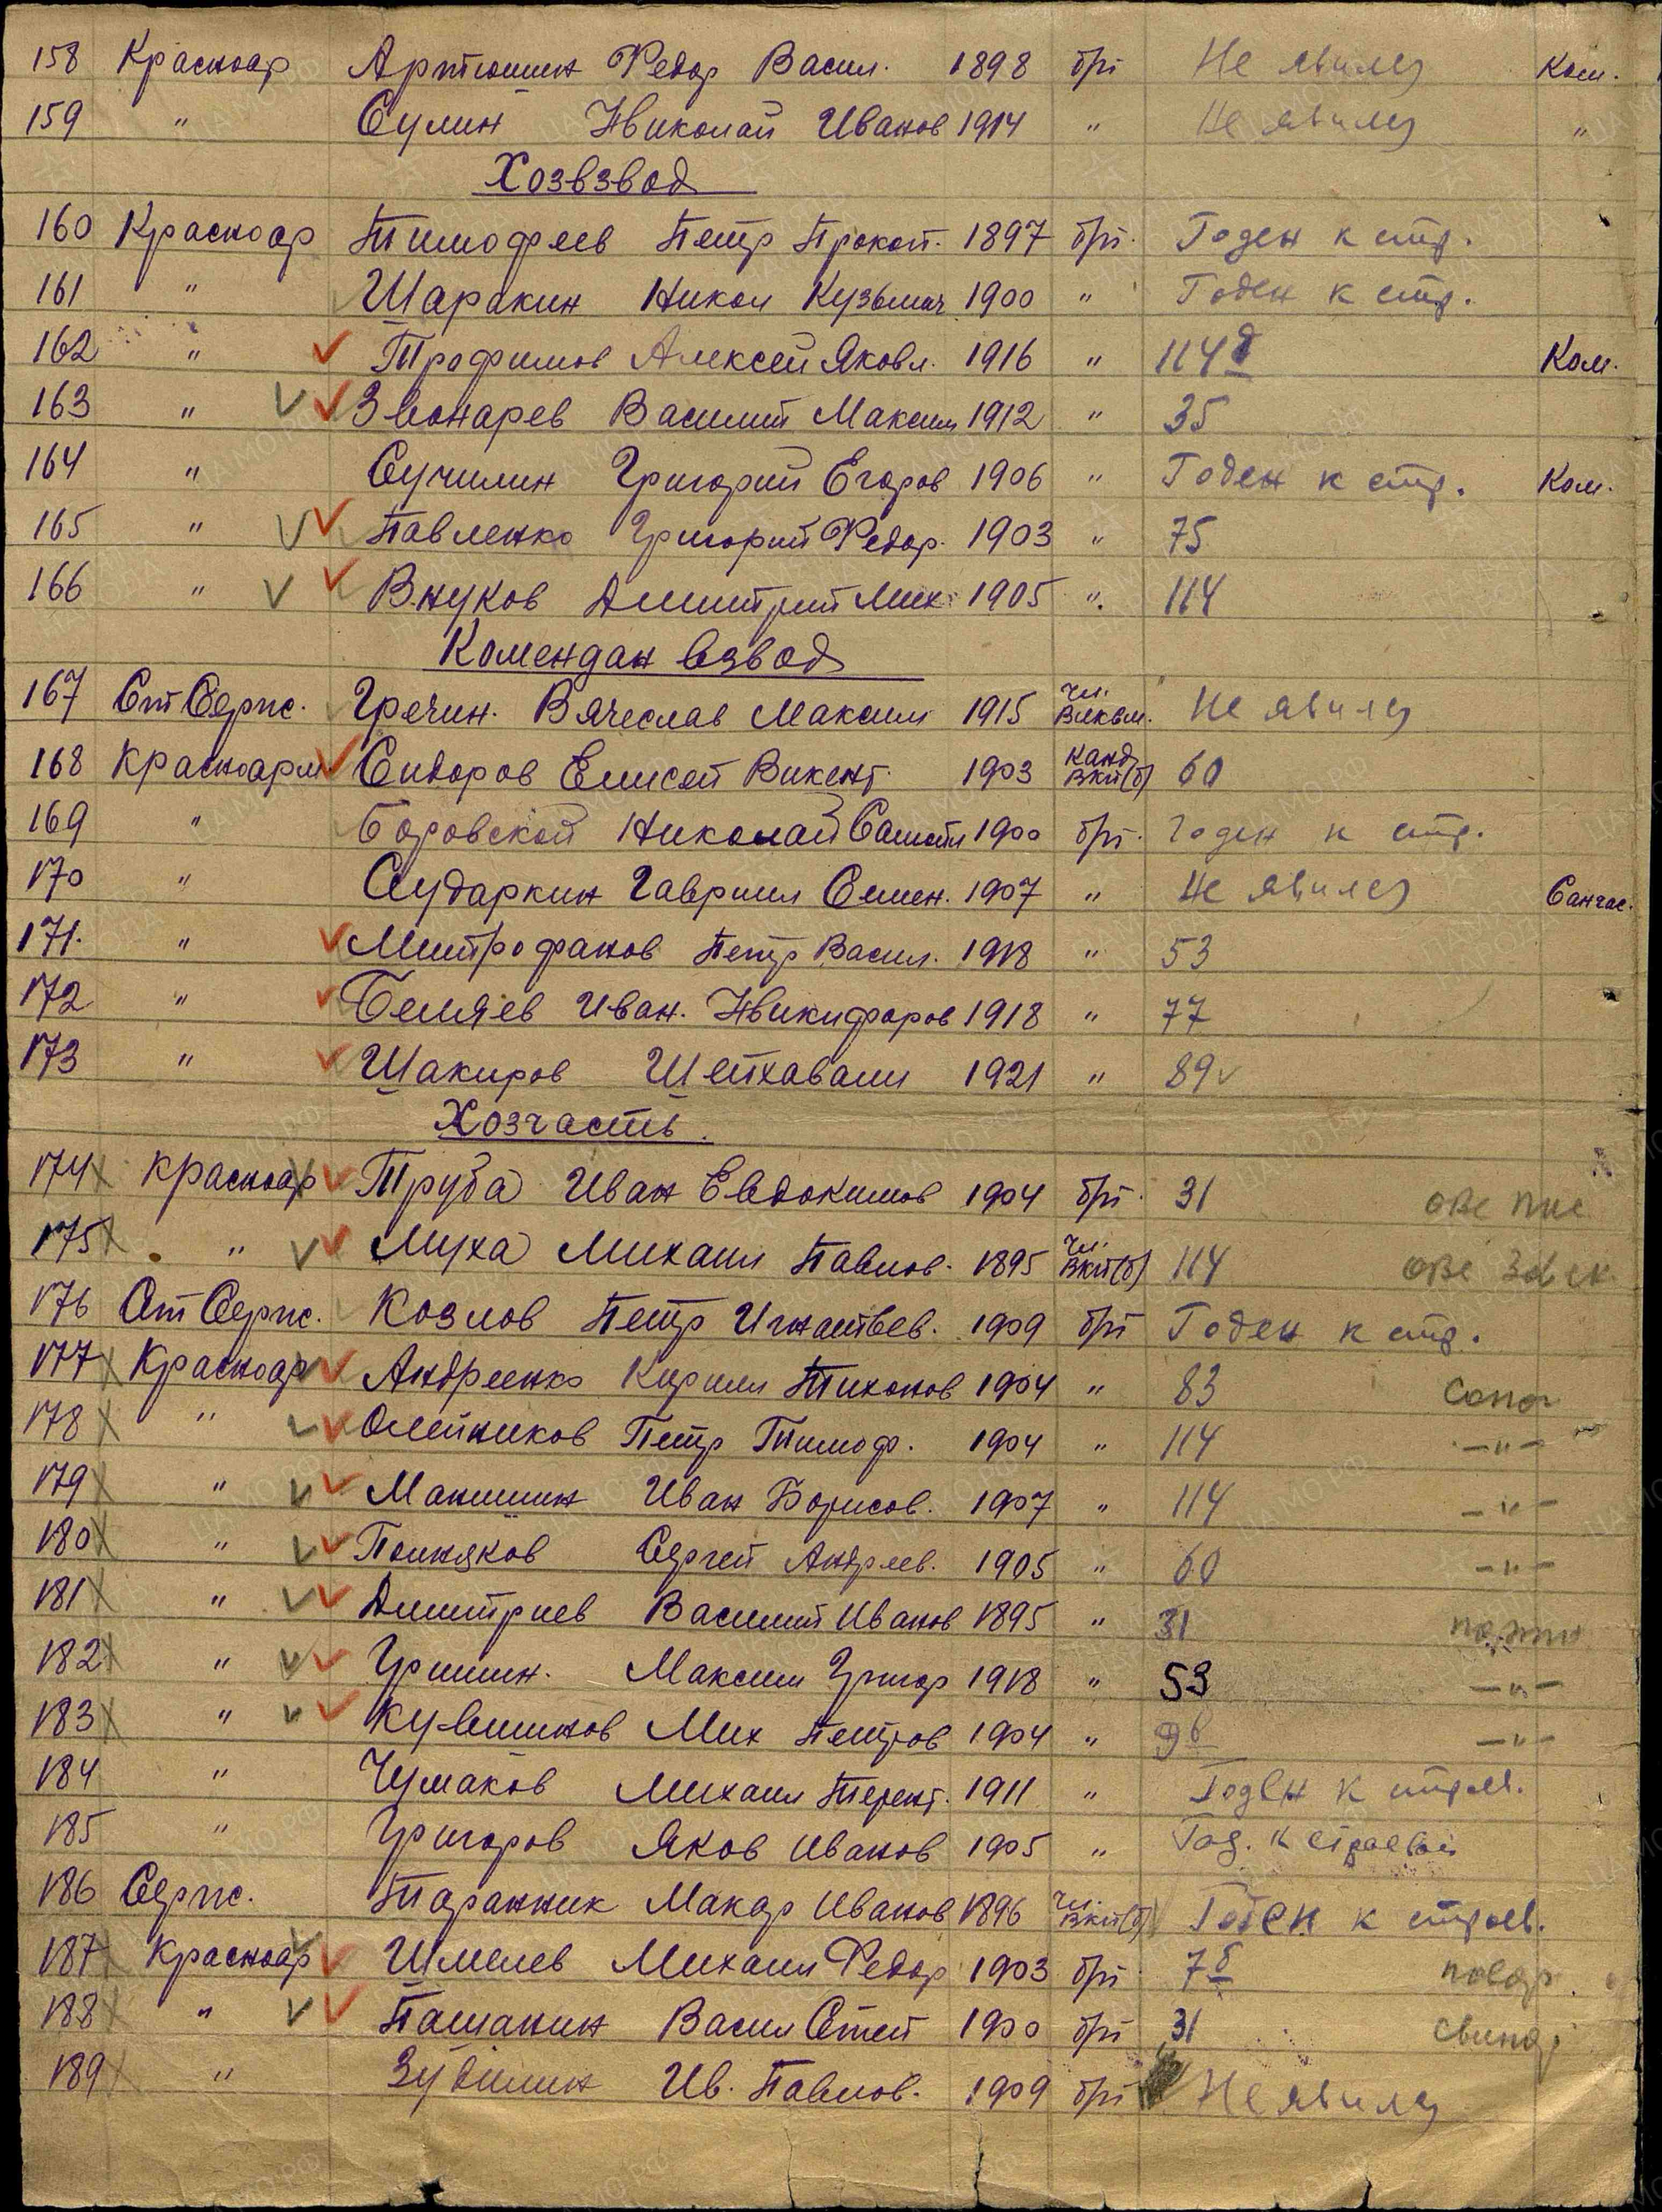 158 Красноар Артюшин Федор Васил. 1898 б/п Не явился Ком.
159 " Сулин Николай Иванов 1914 " Не явился "
Хозвзвод
160 Красноар Тимофеев Петр Прокоп. 1897 б/п. Годен к стр.
161 " Шаракин Никол Кузьмич 1900 " Годен к стр.
162 " Трофимов Алексей Яковл. 1916 " 114д Ком.
163 " Звонарев Василий Максим 1912 " 35
164 " Сучилин Григорий Егоров 1906 " Годен к стр. Ком.
165 " Павленко Григорий Федор. 1903 " 75
166 " Внуков Димитрий Мих. 1905 " 114
Комендан взвод
167 Ст Серж. Гречин. Вячеслав Максим 1915 чл. ВЛКСМ. Не явился
168 Красноарм Сидоров Елисей Викент. 1903 канд ВКП(б) 60
169 " Боровской Николай Самойл 1900 б/п. годен к стр.
170 " Сударкин Гавриил Семен. 1907 " Не явился Санчас.
171. " Митрофанов Петр Васил. 1918 " 53
172 " Беляев Иван. Никифоров 1918 " 77
173 " Шакиров Шейхавали 1921 " 89
Хозчасть.
174 Красноар Труба Иван Евдокимов 1904 б/п. 31
175 " Муха Михаил Павлов. 1895 чл. ВКП(б) 114
176 Ст Серж. Козлов Петр Игнатьев. 1909 б/п Годен к стр.
177 Красноар Андреенко Кирилл Тихонов 1904 " 83 сапог
178 " Олейников Петр Тимоф. 1904 " 114 -"-
179 " Макишин Иван Борисов. 1907 " 114 -"-
180 " Поляков Сергей Андреев. 1905 " 60 -"-
181 " Димитриев Василий Иванов 1895 " 31
182 " Гришин. Максим Григор 1918 " 53 -"-
183 " Кувшинов Мих Петров 1904 " 9в -"-
184 " Чумаков Михаил Терент. 1911 " Годен к строев.
185 " Григоров Яков Иванов 1905 " Год. к строевой
186 Серж. Таранник Макар Иванов 1896 чл. ВКП(б) Годен к строев.
187 Красноар Шмелев Михаил Федор 1903 б/п 7б повар.
188 " Пашанин Васил Степ 1900 б/п 31 свинар
189 " Зубилин Ив. Павлов. 1909 б/п Не явился